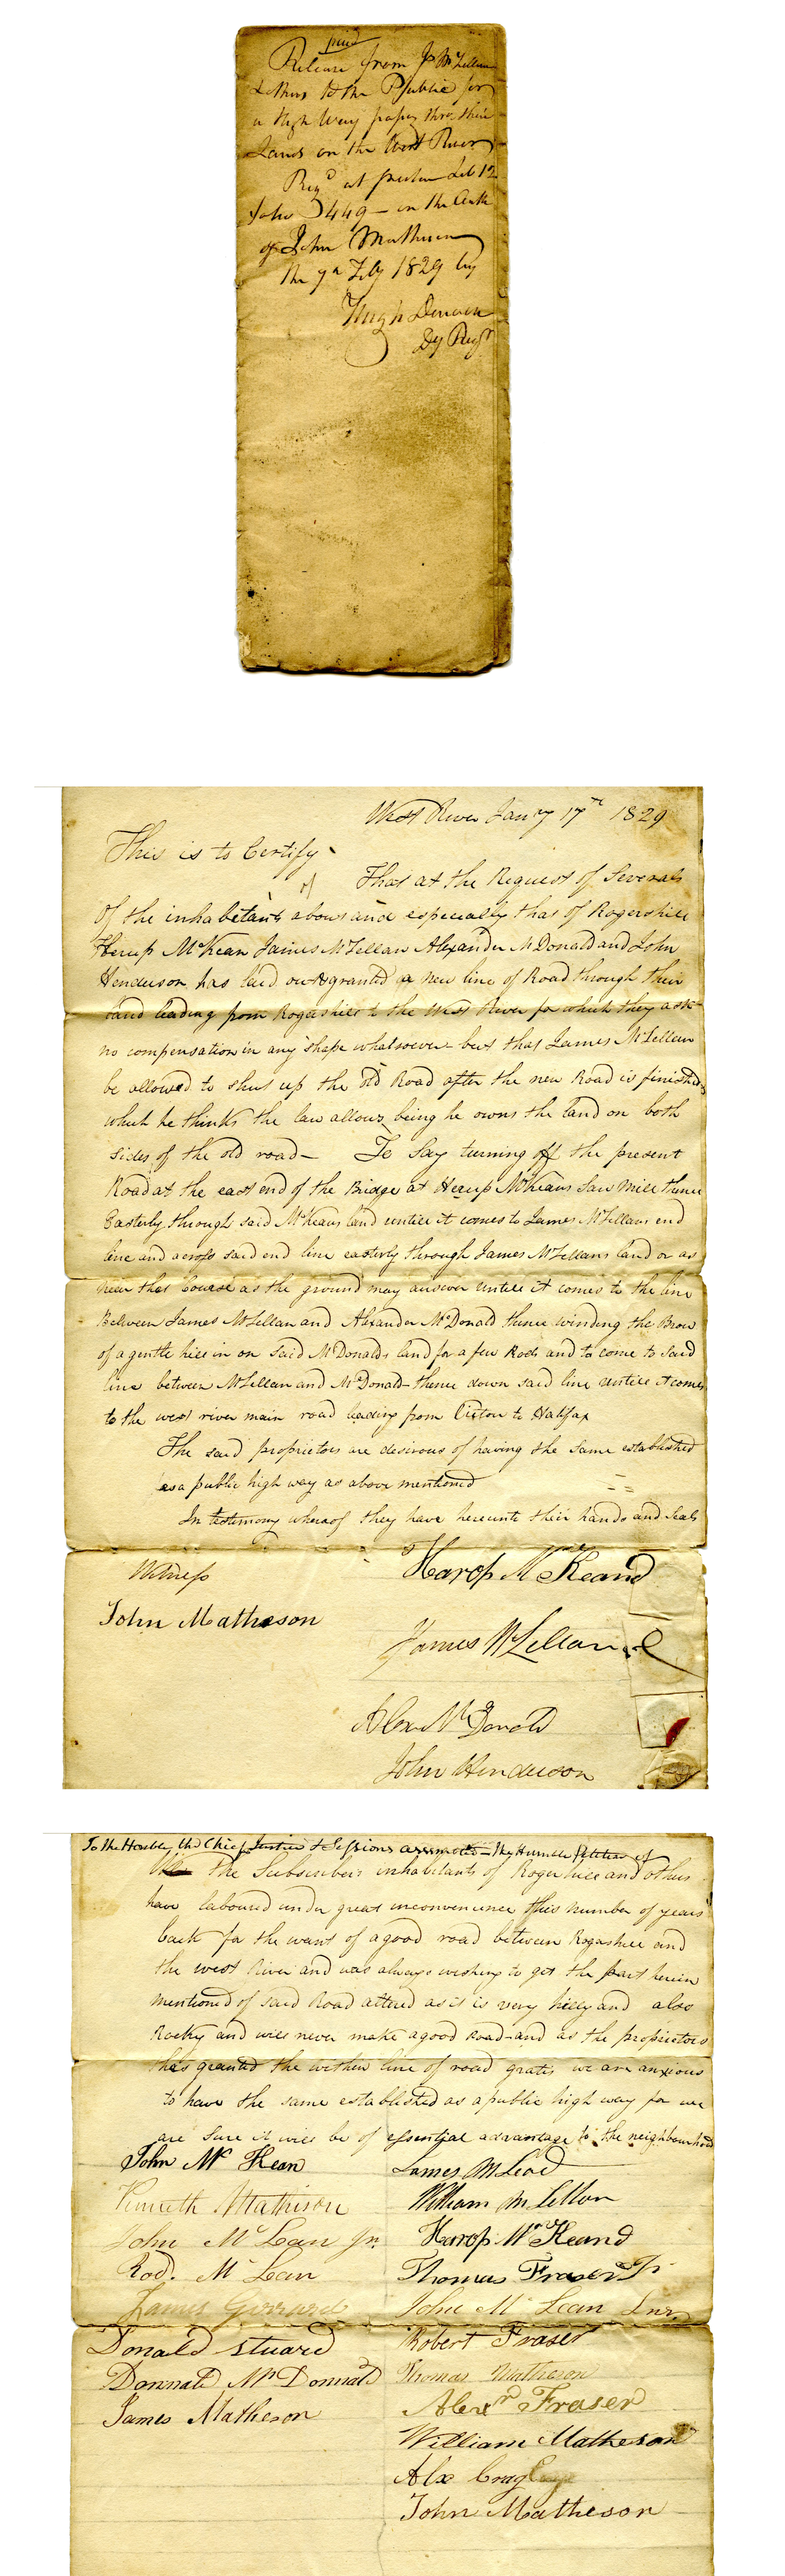 paid
Release from Js McLellan
& others to the Public for
a High Way passing thro their
Lands on the West River
Regd at Pictou Lib 12
folio 449 - on the Oath
of John Matheson
the 9th Feby 1829 by
Hugh Denoon
Dy Regr
West River Jany 17th 1829
This is to Certify
of That at the Request of Severals
Of the inhabetants above and especially that of Rogershill
Herup McKean James McLellan Alexander McDonald and John
Henderson has laid out & granted a new line of Road through their
land leading from Rogershill to the West River for which they ask
no compensation in any shape whatsoever - but that James McLellan
be allowed to shut up the old Road after the new Road is finished
which he thinks the law allows being he owns the land on both
sides of the old road - To Say turning off the present
Road at the east end of the Bridge at Herup McKeans Saw Mill thence
Easterly through said McKeans land untill it comes to James McLellans end
line and across said end line easterly through James McLellans land or as
near that Course as the ground may answer untill it comes to the line
Between James McLellan and Alexander McDonald thence winding the Brow
of a gentle hill in on said McDonalds land for a few Rods and to come to said
line between McLellan and McDonald - thence down said line untill it comes
to the west river main road leading from Pictou to Halifax
The said proprietors are desirous of having the same established
as a public high way as above mentioned
In testimony whereof they have hereunto their hands and Seals
Witness
Harop McKeand
John Matheson
James McLellan
Alex McDonald
John Henderson
To the Honble the Chief Justice & Sessions - the Humble Petition of
the Subscribers inhabitants of Roger hill and others
have laboured under great inconvenience this number of years
back for the want of a good road between Rogershill and
the west River and was always wishing to get the part herein
mentioned of said Road altered as it is very hilly and also
Rocky and will never make a good Road - and as the proprietors
has granted the within line of road gratis we are anxious
to have the same established as a public high way for we
are sure it will be of essential advantage to the neighbourhood
John McKean James McLeod
Kenneth Mathison William McLellan
John McLean Jr. Harop McKeand
Rod. McLean Thomas Fraser Jr
James John McLean Snr.
Donald Stuard Robert Fraser
Donnald McDonnald Thomas Matheson
James Matheson Alexr Fraser
William Matheson
Alx
John Matheson